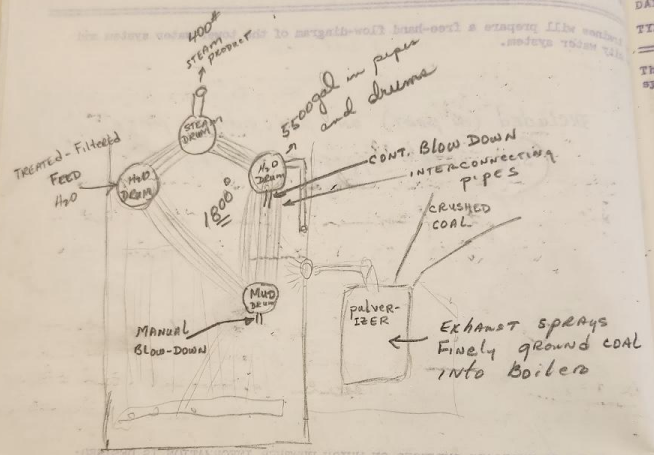 400#
STEAM
PRODUCT
STEAM
DRUM
5500gal in pipes
and drums
TREATED-Filtered
FEED
H2O
H2O
DRUM
H2O
DRUM
1800°
CONT. BLOW DOWN
INTERCONNECTING
PIPES
CRUSHED
COAL
MUD
DRUM
MANUAL
BLOW-DOWN
pulver-
IZER
EXHAUST SPRAYS
Finely ground COAL
INTO Boilers